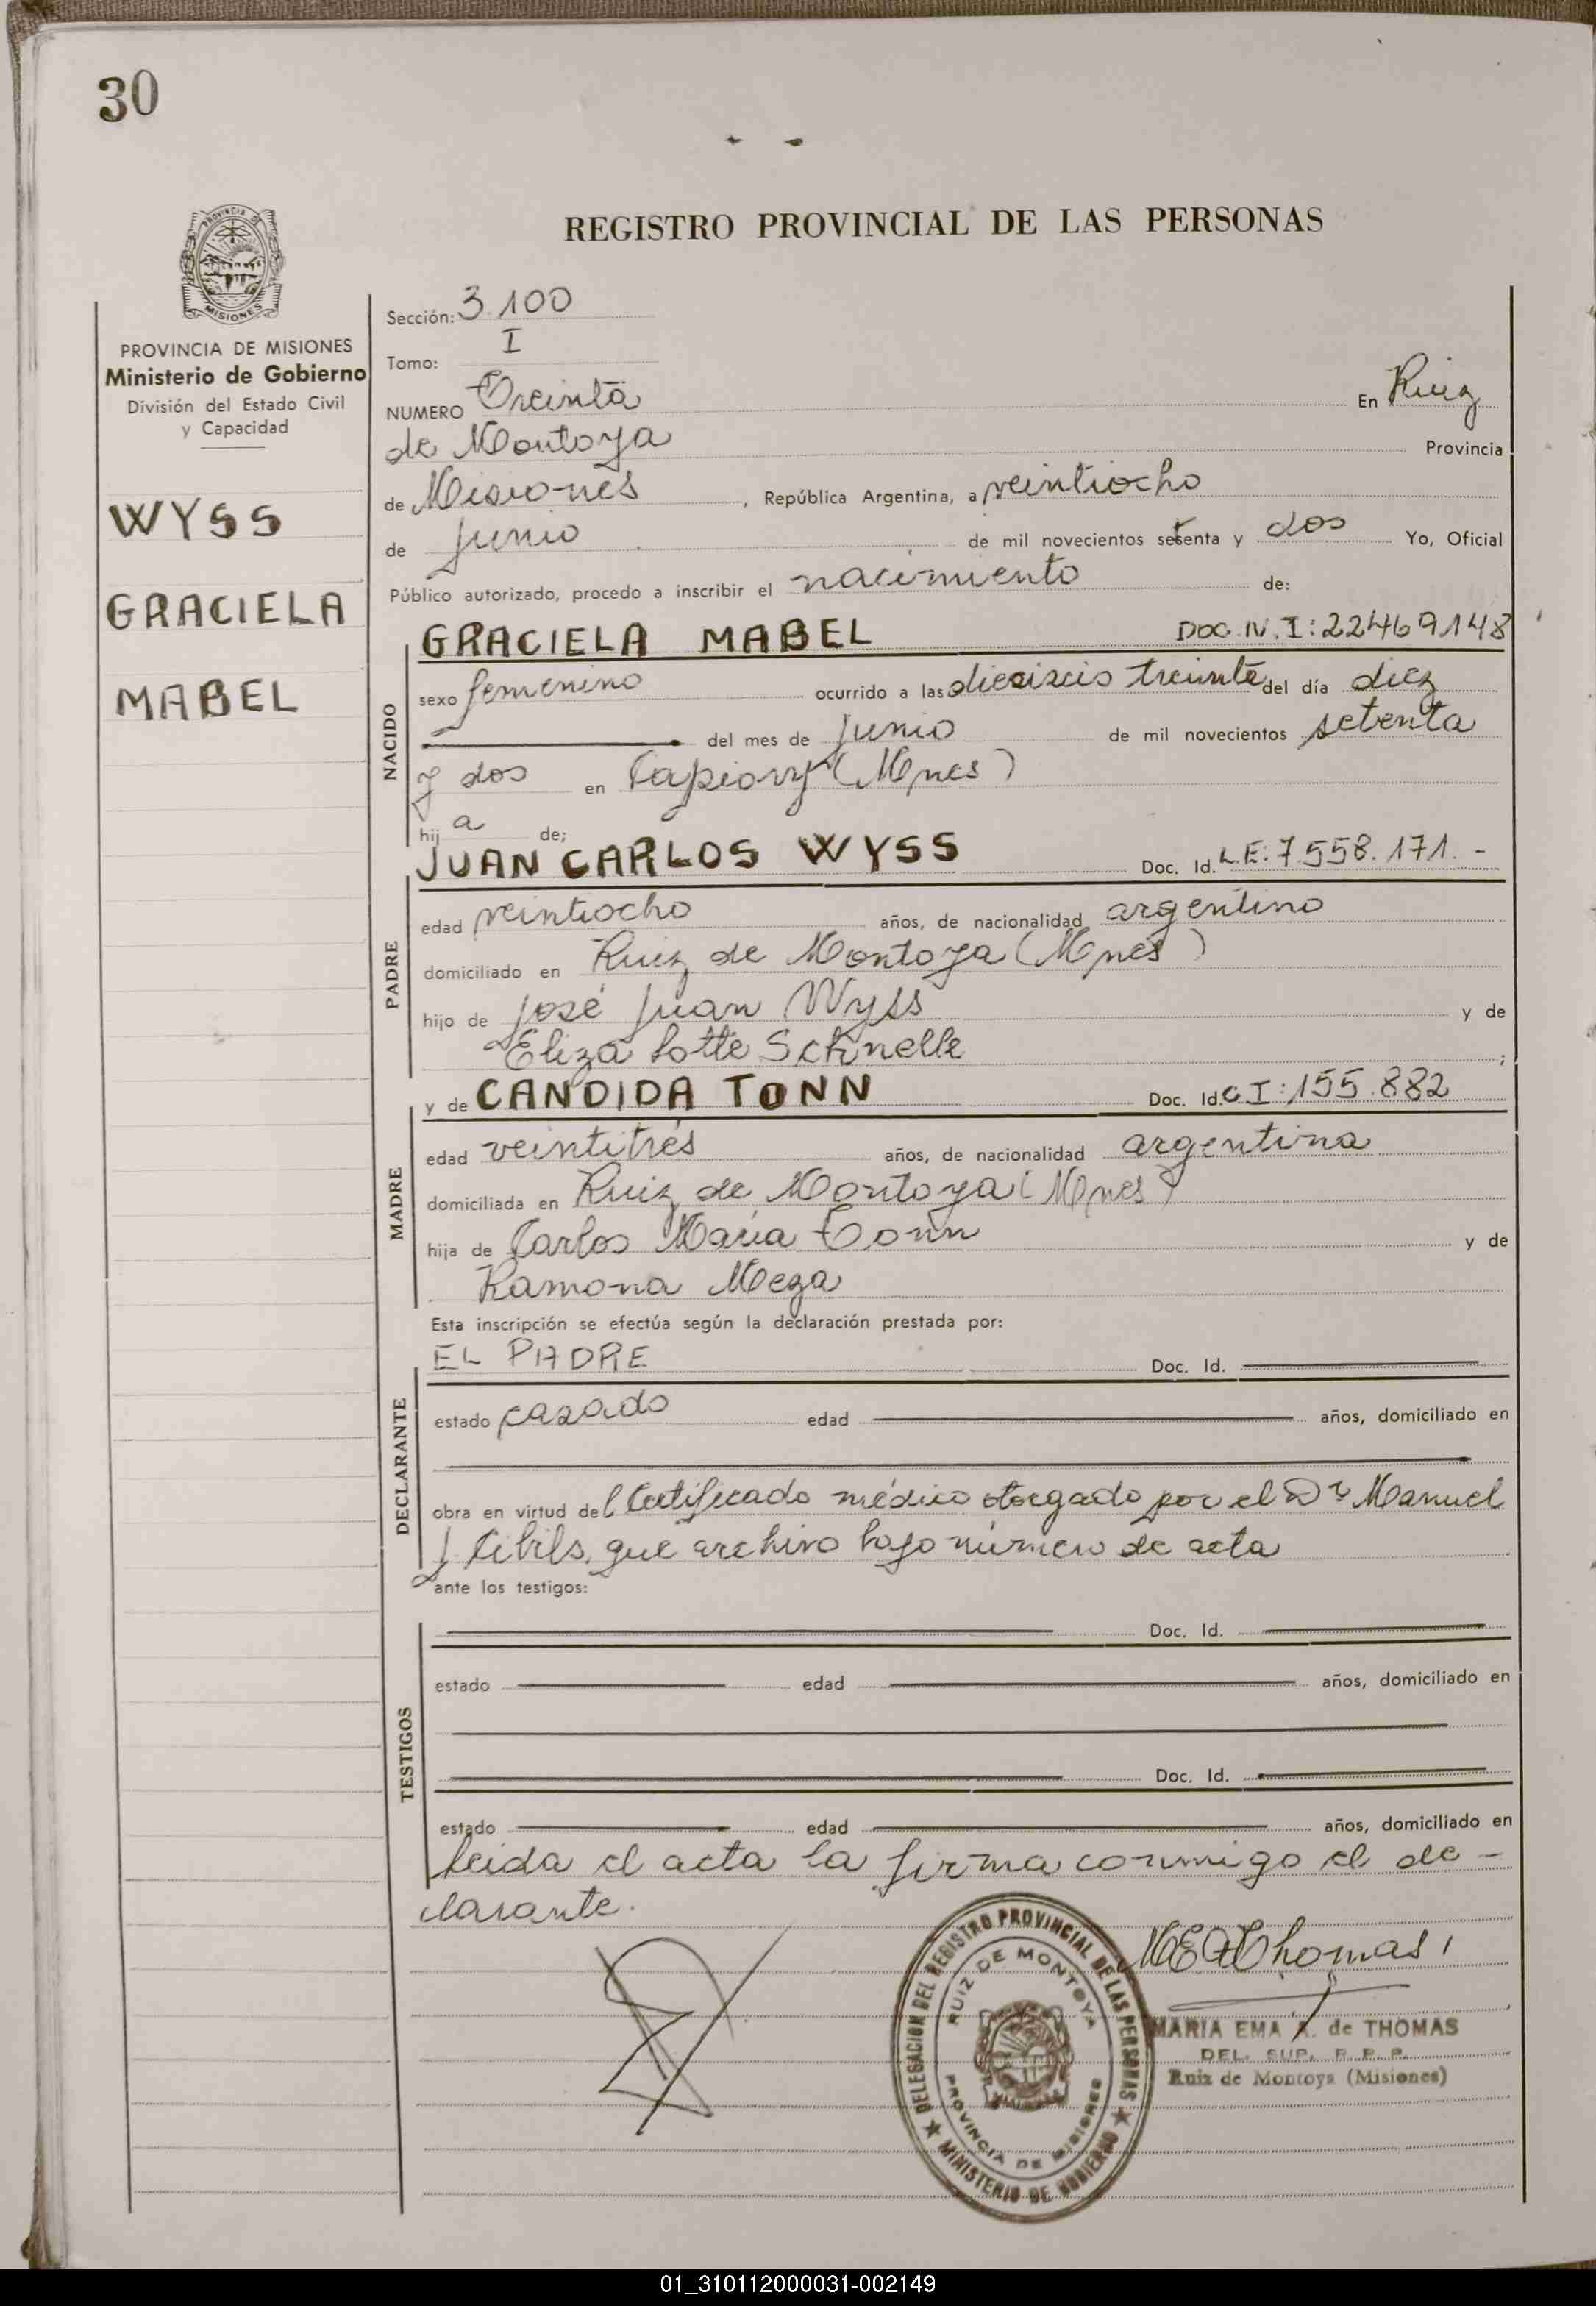 30
PROVINCIA DE
MISIONES
REGISTRO PROVINCIAL DE LAS PERSONAS
PROVINCIA DE MISIONES
Ministerio de Gobierno
División del Estado Civil
y Capacidad
WYSS
GRACIELA
MABEL
Sección: 3.100
Tomo: I
NUMERO Treinta En Ruiz
de Montoya Provincia
de Misiones, República Argentina, a veintiocho
de junio de mil novecientos setenta y dos Yo, Oficial
Público autorizado, procedo a inscribir el nacimiento de:
NACIDO
GRACIELA MABEL DOC.N.I: 22469148
sexo femenino ocurrido a las dieciseis treinta del día diez
del mes de junio de mil novecientos setenta
y dos en Capiovy (Mnes)
hij a de;
PADRE
JUAN CARLOS WYSS Doc. Id. L.E: 7.558.171.-
edad veintiocho años, de nacionalidad argentino
domiciliado en Ruiz de Montoya (Mnes)
hijo de José Juan Wyss y de
Eliza Lotte Schnelle ;
MADRE
y de CANDIDA TONN Doc. Id. C.I: 155.882
edad veintitrés años, de nacionalidad argentina
domiciliada en Ruiz de Montoya (Mnes)
hija de Carlos María Tonn y de
Ramona Meza
Esta inscripción se efectúa según la declaración prestada por:
DECLARANTE
EL PADRE Doc. Id.
estado casado edad años, domiciliado en
obra en virtud del Certificado médico otorgado por el Dr Manuel
J Cibils, que archivo bajo número de acta
ante los testigos:
TESTIGOS
Doc. Id.
estado edad años, domiciliado en
Doc. Id.
estado edad años, domiciliado en
leida el acta la firma conmigo el de-
clarante.
DELEGACION DEL REGISTRO PROVINCIAL DE LAS PERSONAS
RUIZ DE MONTOYA
PROVINCIA DE MISIONES
MINISTERIO DE GOBIERNO
MARIA EMA A. de THOMAS
DEL. SUP. R. P. P.
Ruiz de Montoya (Misiones)
01_310112000031-002149